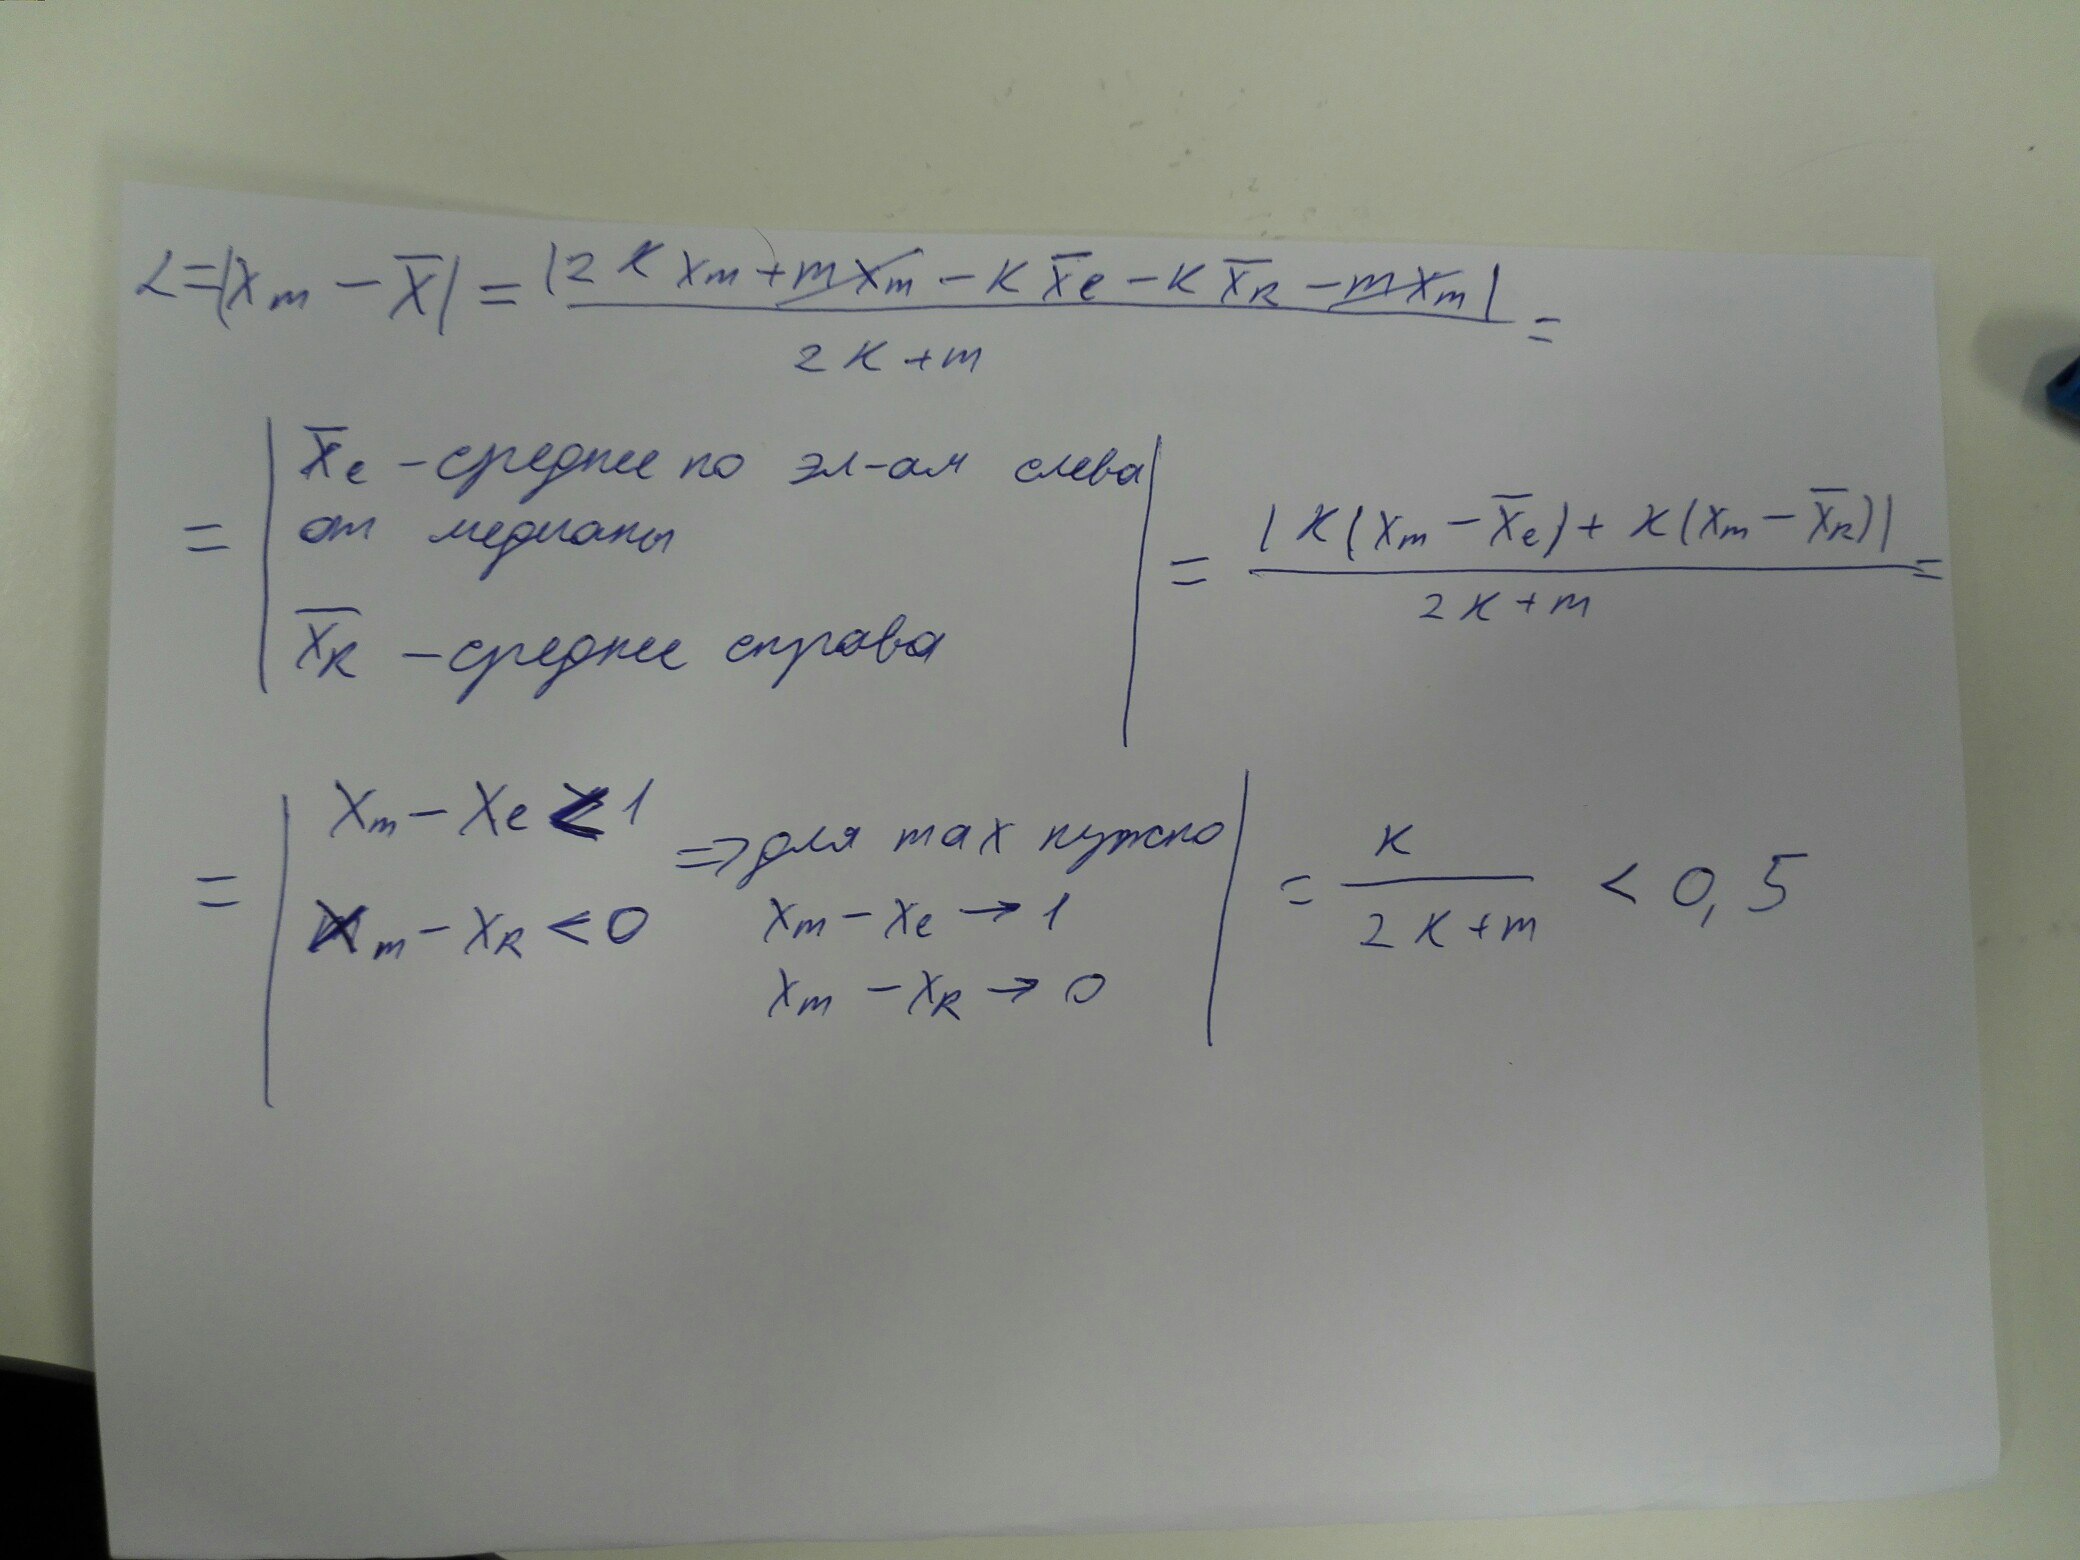 L = |x_m - X̄| = |2k x_m + m x_m - k x̄_e - k x̄_R - m x_m| / (2k+m) =
= | x̄_e - среднее по эл-ам слева
от медианы
x̄_R - среднее справа | = |k(x_m - x̄_e) + k(x_m - x̄_R)| / (2k+m) =
= | x_m - x_e < 1
x_m - x_R < 0 => для max нужно
x_m - x_e → 1
x_m - x_R → 0 | = k / (2k+m) < 0,5